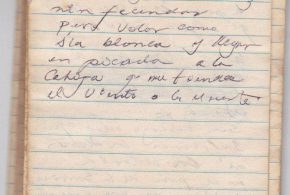 sin fecundar
pero volar como
día blanca y llegar
en picada a la
que me
el viento o la muerte